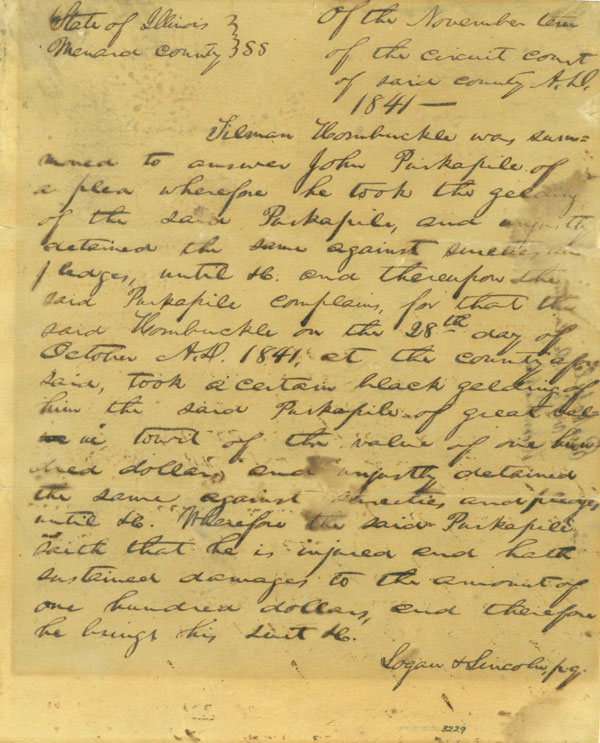 State of Illinois }
Menard County } SS
Of the November term
of the circuit court
of said county A.D.
1841—
Tilman Hornbuckle was sum=
moned to answer John Purkapile of
a plea wherefore he took the gelding
of the said Purkapile, and unjustly
detained the same against sureties and
pledges, until &c. and thereupon the
said Purkapile complains, for that the
said Hornbuckle on the 28th day of
October A.D. 1841, at the county afore
said, took a certain black gelding of
him the said Purkapile of great val
ue, towit of the value of one hun
dred dollars, and unjustly detained
the same against sureties and pledges
until &c. Wherefore the said Purkapile
saith that he is injured and hath
sustained damages to the amount of
one hundred dollars, and therefore
he brings his suit &c.
Logan & Lincoln, p.q.
3229